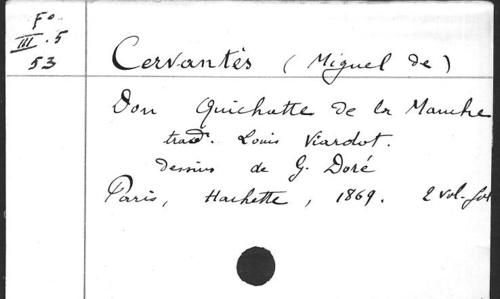 Fo.
III.5
53
Cervantès (Miguel de)
Don Quichotte de la Manche
trad. Louis Viardot.
dessins de G. Doré
Paris, Hachette, 1869. 2 vol. fol